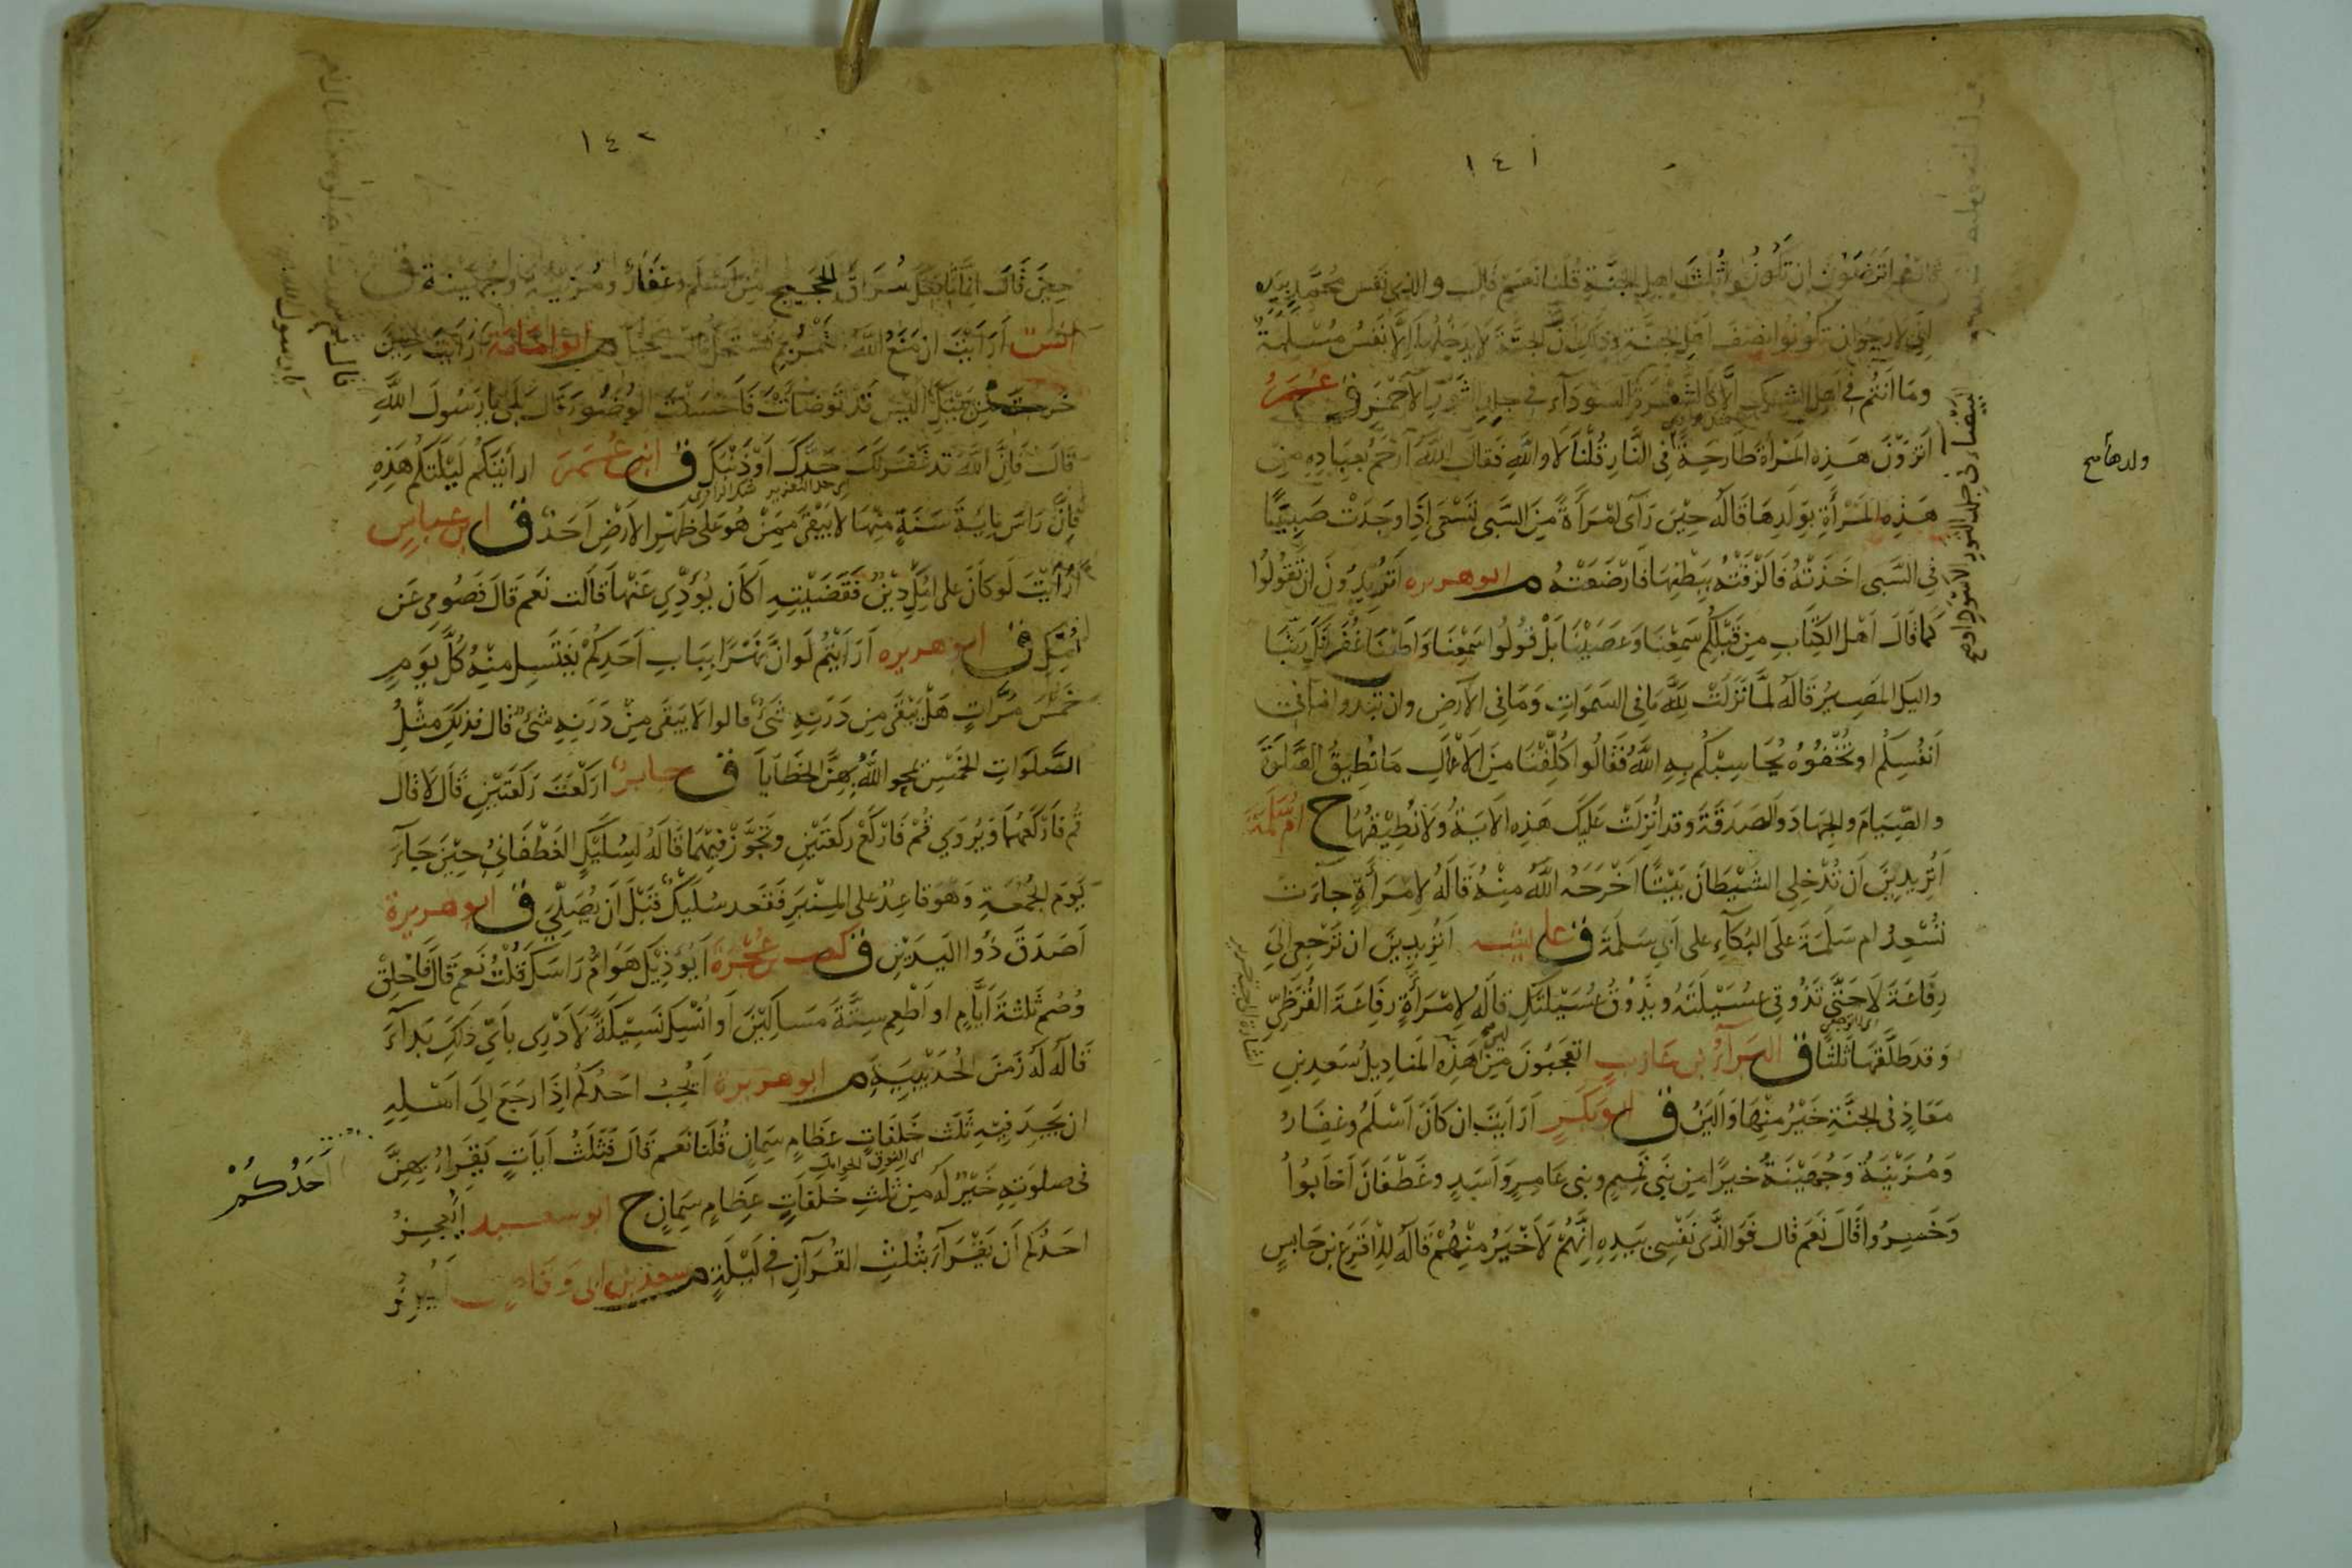 ١٤١
اترضون ان تكونوا ثلث اهل الجنة قلنا نعم قال والذي نفس محمد بيده
اني لارجو ان تكونوا نصف اهل الجنة وذلك ان الجنة لا يدخلها الا نفس مسلمة
وما انتم في اهل الشرك الا كالشعرة السوداء في جلد الثور الاحمر ق عمر
اَتَرَوْنَ هذه المرأة طارحة في النار قلنا لا والله فقال الله ارحم بعباده من
هذه المرأة بولدها قاله حين رآى امرأة من السبي تسعى اذا وجدت صبيا
في السبي اخذته فالزقته ببطنها فارضعته م ابو هريره اتريدون ان تقولوا
كما قال اهل الكتاب من قبلكم سمعنا وعصينا بل قولوا سمعنا واطعنا غفرانك ربنا
واليك المصير قاله لما نزلت لله ما في السموات وما في الارض وان تبدوا ما في
انفسكم او تخفوه يحاسبكم به الله فقالوا كلفنا من الاعمال ما نطيق الصلوة
والصيام والجهاد والصدقة وقد انزلت عليك هذه الاية ولا نطيقها خ ام سلمة
اتريدين ان تدخلي الشيطان بيتا اخرجه الله منه قاله لامرأة جاءت
تسعد ام سلمة على البكاء على ابي سلمة ق عايشه اتريدين ان ترجعي الى
رفاعة لا حتى تذوقي عسيلته ويذوق عسيلتك قاله لامرأة رفاعة القرظي
وقد طلقها ثلثا ق البراء بن عازب اتعجبون من هذه المناديل سعد بن
معاذ في الجنة خير منها والين ق ابو بكر ارايت ان كان اسلم وغفار
ومزينة وجهينة خيرا من بني تميم وبني عامر واسد وغطفان اخابوا
وخسروا قال نعم قال فوالذي نفسي بيده انهم لاخير منهم قاله للاقرع بن حابس
ولدها صح
البيضاء في جلد الثور الاسود او صح
١٤٢
حين قال انما بايعك سراق الحجيج من اسلم وغفار ومزينة وجهينة ق
انس ارايت ان منع الله الثمرة بم تستحل مال اخيك م ابو امامة ارايت حين
خرجت من بيتك اليس قد توضات فاحسنت الوضوء قال بلى يا رسول الله
قال فان الله قد غفر لك حدك او ذنبك ق ابن عمر ارأيتكم ليلتكم هذه
فان راس مائة سنة منها لا يبقى ممن هو على ظهر الارض احد ق ابن عباس
ارأيت لو كان على امك دين فقضيته اكان يؤدي عنها قالت نعم قال فصومي عن
امك ق ابو هريره ارأيتم لو ان نهرا بباب احدكم يغتسل منه كل يوم
خمس مرات هل يبقى من درنه شئ قالوا لا يبقى من درنه شئ قال فذلك مثل
الصلوات الخمس يمحو الله بهن الخطايا ق جابر اركعت ركعتين قال لا قال
قم فاركعهما ويروي قم فاركع ركعتين وتجوز فيهما قاله لسليك الغطفاني حين جاء
يوم الجمعة وهو قاعد على المنبر فقعد سليك قبل ان يصلي ق ابو هريرة
اصدق ذوا اليدين ق كعب بن عجرة ايؤذيك هوام راسك قلت نعم قال فاحلق
وصم ثلثة ايام او اطعم ستة مساكين او انسك نسيكة لا ادري باي ذلك بدآء
قاله له زمن الحديبية م ابو هريرة ايحب احدكم اذا رجع الى اهله
ان يجد فيه ثلث خلفات عظام سمان قلنا نعم قال فثلث ايات يقرا بهن
في صلوته خير له من ثلث خلفات عظام سمان خ ابو سعيد ايعجز
احدكم ان يقرآء بثلث القرآن في ليلة م سعد بن ابي وقاص
قال ثم
يا رسول الله
احدكم